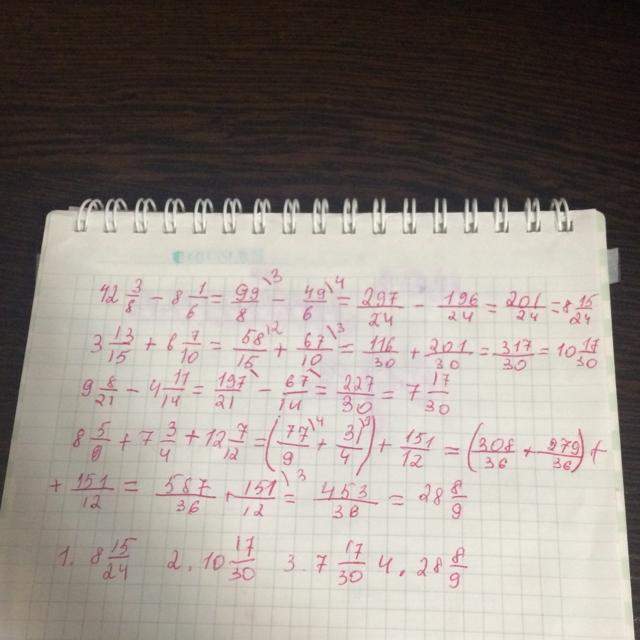 42 3/8 - 8 1/6 = 99\3/8 - 49\4/6 = 297/24 - 196/24 = 201/24 = 8 15/24
3 13/15 + 6 7/10 = 58\2/15 + 67\3/10 = 116/30 + 201/30 = 317/30 = 10 17/30
9 8/21 - 4 11/14 = 197\/21 - 67\/14 = 227/30 = 7 17/30
8 5/9 + 7 3/4 + 12 7/12 = (77\4/9 + 31\9/4) + 151/12 = (308/36 + 279/36) +
+ 151/12 = 587/36 + 151\3/12 = 453/36 = 28 8/9
1. 8 15/24 2. 10 17/30 3. 7 17/30 4. 28 8/9